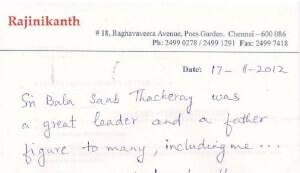 Rajinikanth
# 18, Raghavaveera Avenue, Poes Garden, Chennai – 600 086
Ph: 2499 0278 / 2499 1291 Fax: 2499 7418
Date: 17-11-2012
Sri Bala Saab Thackeray was
a great leader and a father
figure to many, including me...